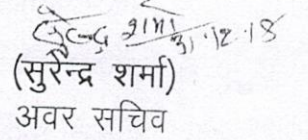 सुरेन्द्र शर्मा 31.12.18
(सुरेन्द्र शर्मा)
अवर सचिव